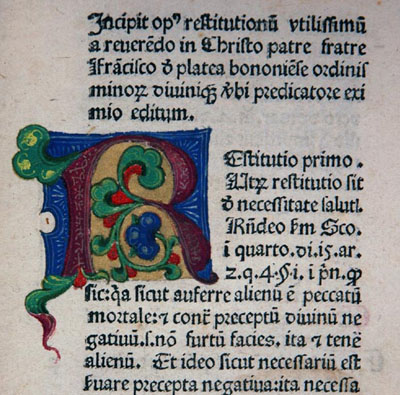 Incipit op⁹ restitutionū vtilissimū
a reuerēdo in Christo patre fratre
Frācisco ď platea bononiēse ordinis
minoꝝ diuiniqꝫ ỽbi predicatore exi
mio editum.
REstitutio primo.
Utꝝ restitutio sit
ď necessitate salutꝭ.
Rñdeo ẜm Sco.
ī quarto.di.15.ar.
2.q.4.§.i.ī pͥn.
sic:q̄a sicut auferre alienū ē peccatū
mortale:⁊ contͣ preceptū diuinū ne
gatiuū.s.nō furtū facies, ita ⁊ tenē
alienū. Et ideo sicut necessariū est
ẜuare precepta negatiua:ita necessa